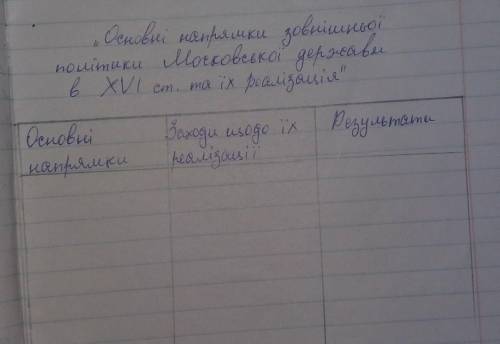 „Основні напрямки зовнішньої
політики Московської держави
в XVI ст. та їх реалізація"
Основні
напрямки
Заходи щодо їх
реалізації
Результати